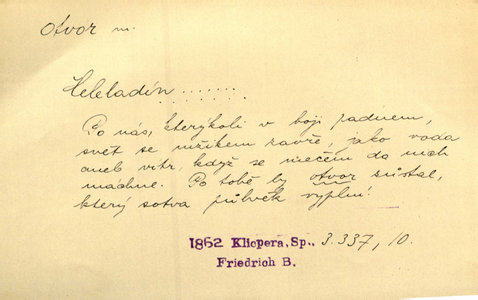 Otvor m.
Heleladín.......
Po nás, kterýkoli v boji padnem,
svět se mžikem zavře, jako voda
aneb vítr, když se mečem do nich
máchne. Po tobě by otvor zůstal,
který sotva půlvěk vyplní!
1862 Klicpera, Sp., 3.337, 10.
Friedrich B.